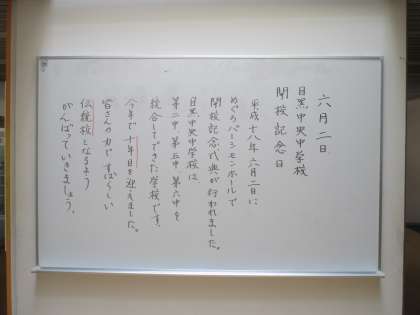 六月二日
目黒中央中学校
開校記念日
平成十八年六月二日に
めぐろパーシモンホールで
開校記念式典が行われました。
目黒中央中学校は、
第二中、第五中、第六中を
統合してできた学校です。
今年で十年目を迎えました。
皆さんの力ですばらしい
伝統校となるよう
がんばっていきましょう。